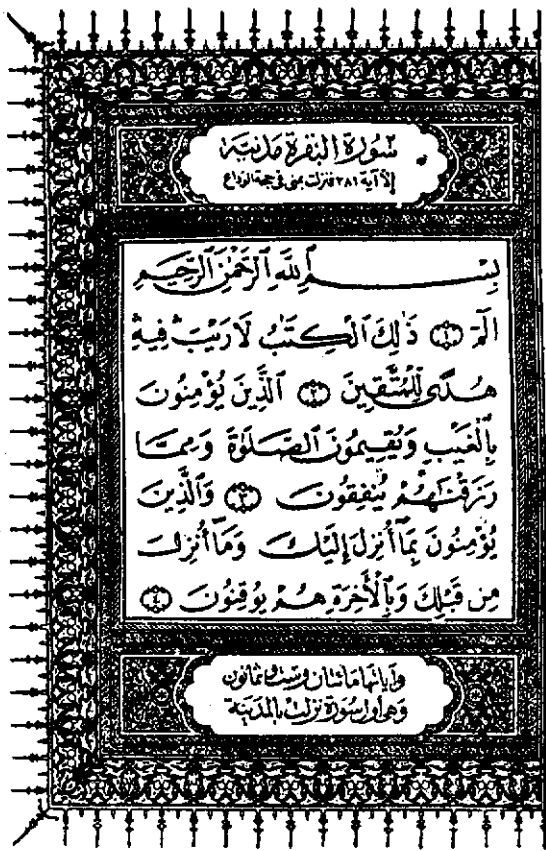 سُورَةُ الْبَقَرَةِ مَدَنِيَّة
إلا آية ٢٨١ فنزلت بمنى في حجة الوداع
بِسْمِ ٱللَّهِ ٱلرَّحْمَٰنِ ٱلرَّحِيمِ
الٓمٓ ١ ذَٰلِكَ ٱلْكِتَٰبُ لَا رَيْبَ ۛ فِيهِ ۛ
هُدًى لِّلْمُتَّقِينَ ٢ ٱلَّذِينَ يُؤْمِنُونَ
بِٱلْغَيْبِ وَيُقِيمُونَ ٱلصَّلَوٰةَ وَمِمَّا
رَزَقْنَٰهُمْ يُنفِقُونَ ٣ وَٱلَّذِينَ
يُؤْمِنُونَ بِمَآ أُنزِلَ إِلَيْكَ وَمَآ أُنزِلَ
مِن قَبْلِكَ وَبِٱلْأَخِرَةِ هُمْ يُوقِنُونَ ٤
وآياتها مائتان وست وثمانون
وهى أول سورة نزلت بالمدينة